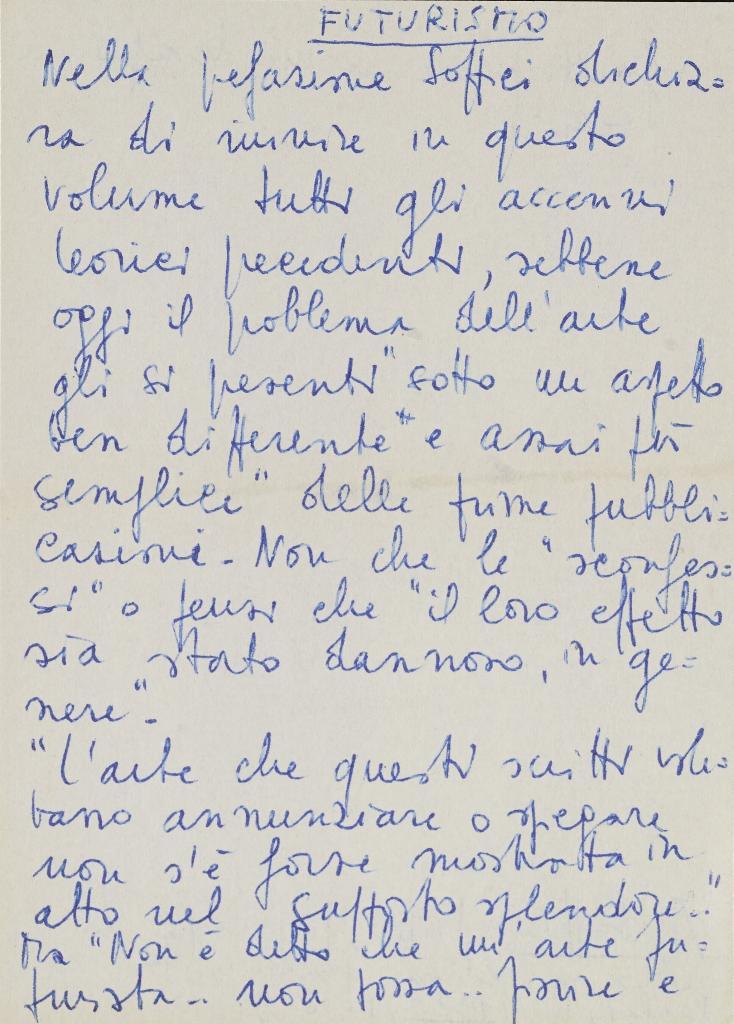 FUTURISMO
Nella prefazione Soffici dichia=
ra di riunire in questo
volume tutti gli accenni
teorici precedenti, sebbene
oggi il problema dell'arte
gli si presenti "sotto un aspetto
ben differente" e assai più
semplice" delle prime pubbli=
cazioni. Non che le "sconfes=
si" o pensi che "il loro effetto
sia stato dannoso, in ge=
nere".
"L'arte che questi scritti vole=
vano annunziare o spiegare
non s'è forse mostrata in
atto nel supposto splendore.."
Ma "Non è detto che un'arte fu=
turista.. non possa.. fiorire e